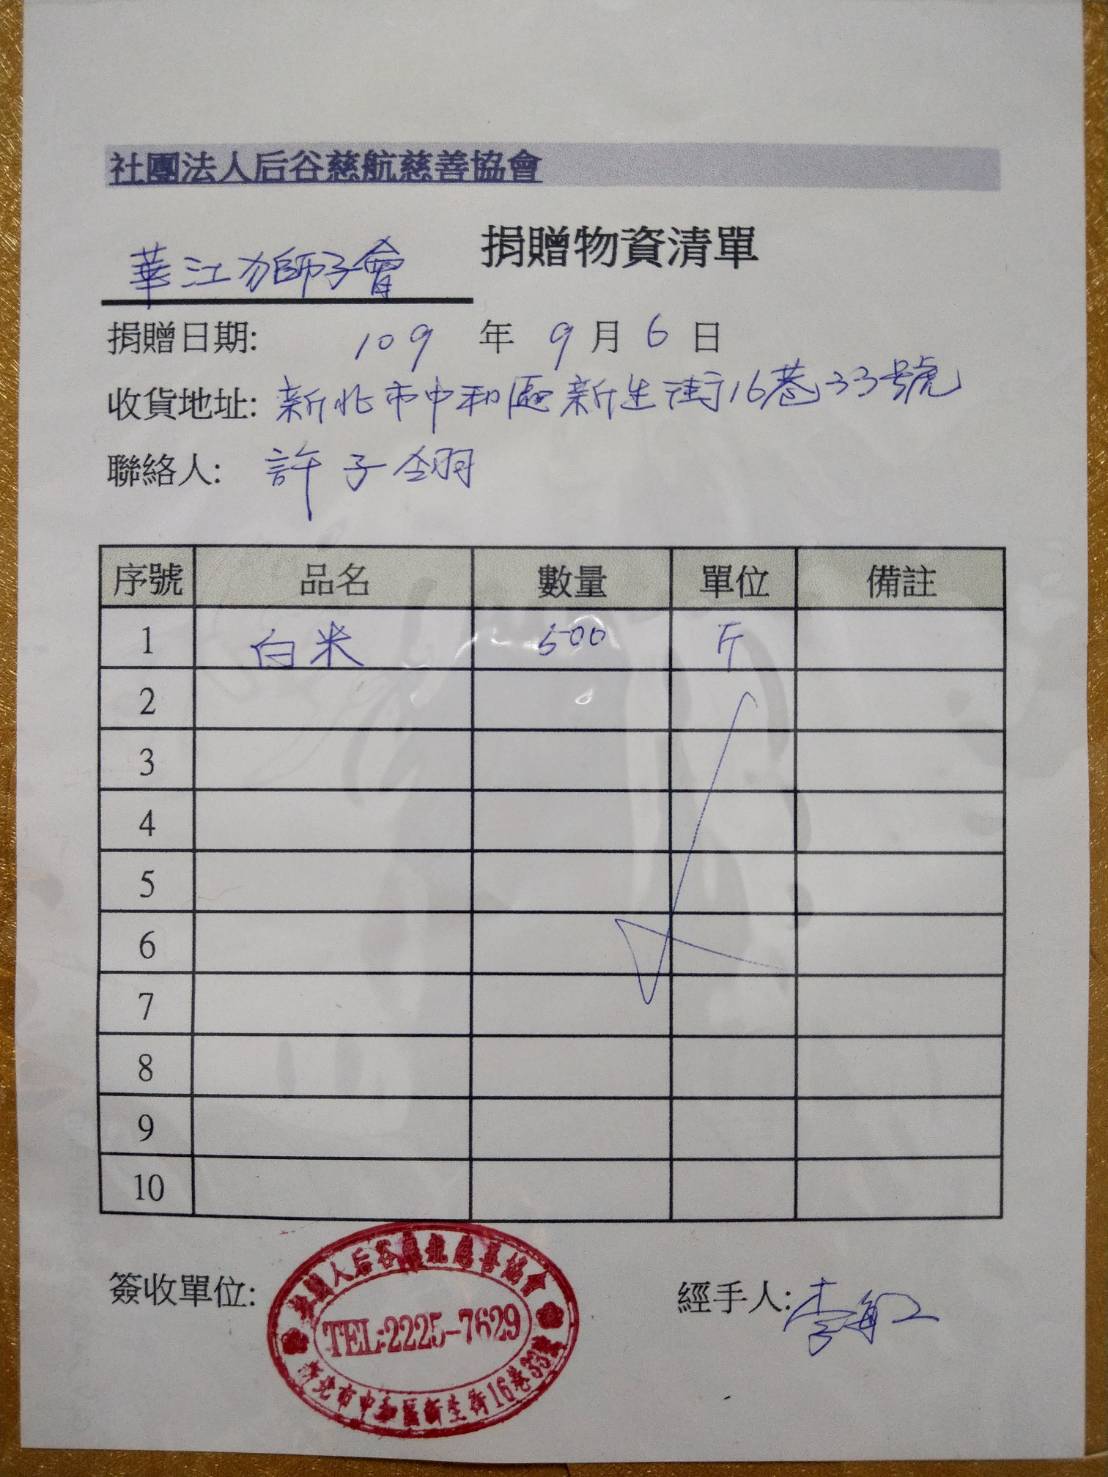 社團法人后谷慈航慈善協會
華江力師子會 捐贈物資清單
捐贈日期: 109 年 9 月 6 日
收貨地址: 新北市中和區新生街16巷33號
聯絡人: 許子翎
序號 品名 數量 單位 備註
1 白米 500 斤
2
3
4
5
6
7
8
9
10
簽收單位: 經手人: 李
社團法人后谷慈航慈善協會
TEL:2225-7629
新北市中和區新生街16巷33號